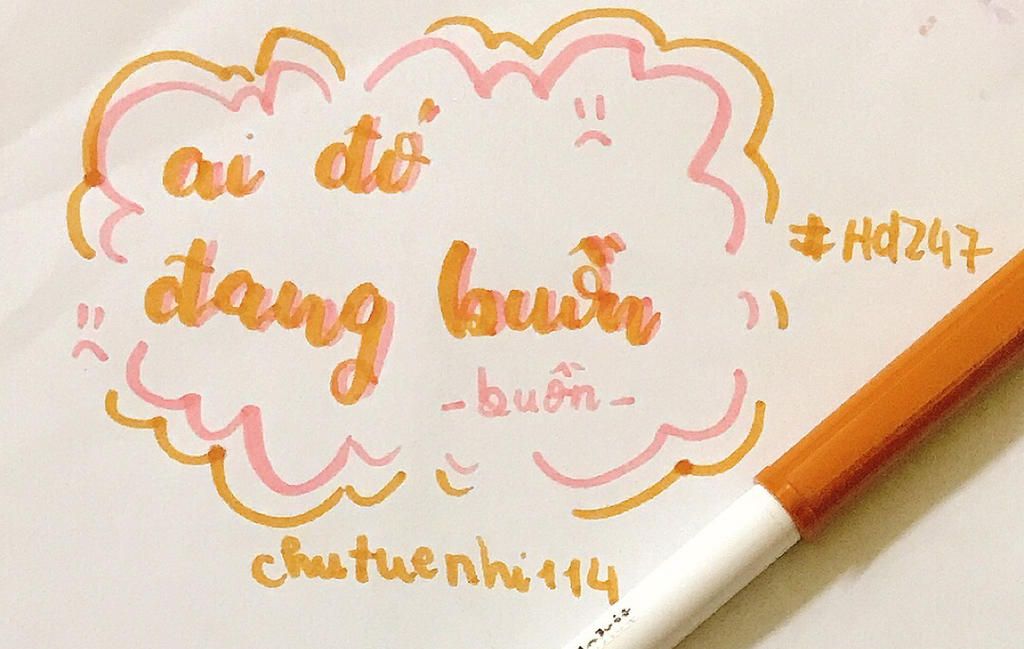 ai đó
đang buồn
-buồn-
#Hd247
chutuenhi114